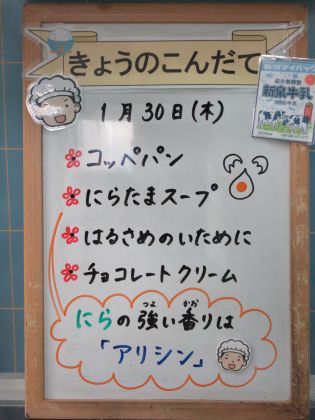 きょうのこんだて
1月30日(木)
コッペパン
にらたまスープ
はるさめのいために
チョコレートクリーム
にらの強い香りは
「アリシン」
新泉牛乳